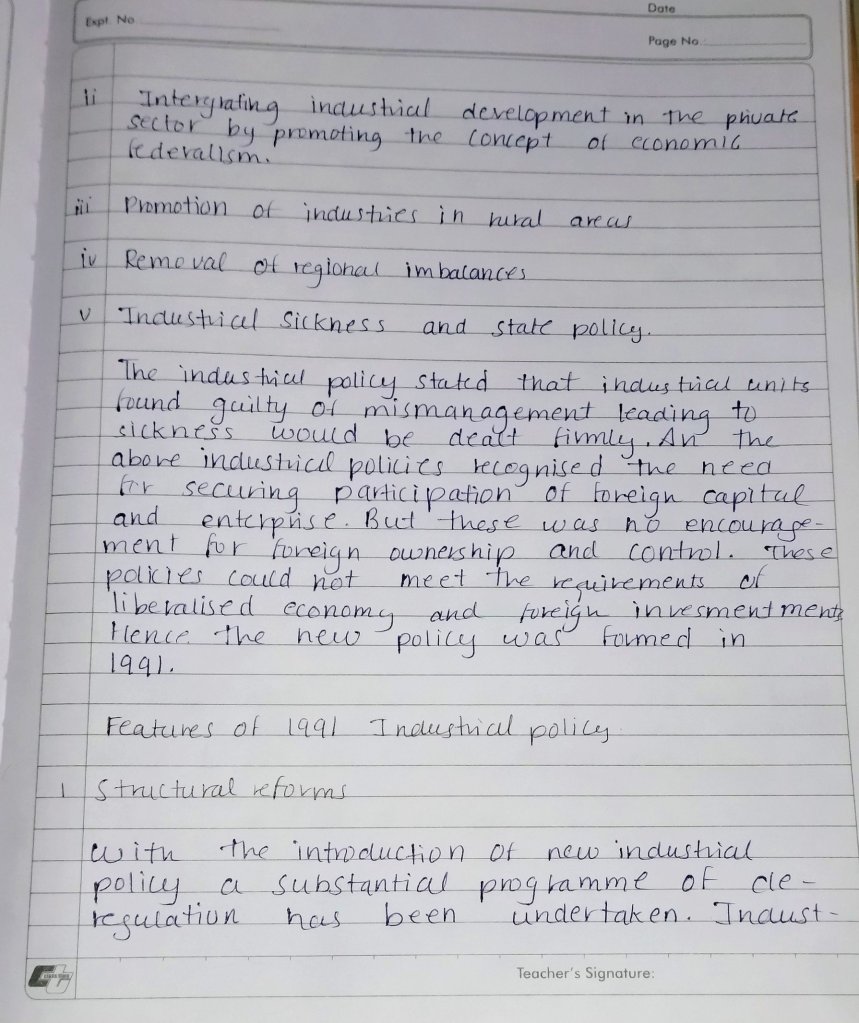 Date
Expt. No.
Page No.
ii Intergrating industrial development in the private
sector by promoting the concept of economic
federalism.
iii Promotion of industries in rural areas
iv Removal of regional imbalances
v Industrial sickness and state policy.
The industrial policy stated that industrial units
found guilty of mismanagement leading to
sickness would be dealt firmly. An the
above industrial policies recognised the need
for securing participation of foreign capital
and enterprise. But these was no encourage-
ment for foreign ownership and control. These
policies could not meet the requirements of
liberalised economy and foreign invesment ments
Hence the new policy was formed in
1991.
Features of 1991 Industrial policy
1 Structural reforms
With the introduction of new industrial
policy a substantial programme of de-
regulation has been undertaken. Indust-
Teacher's Signature: